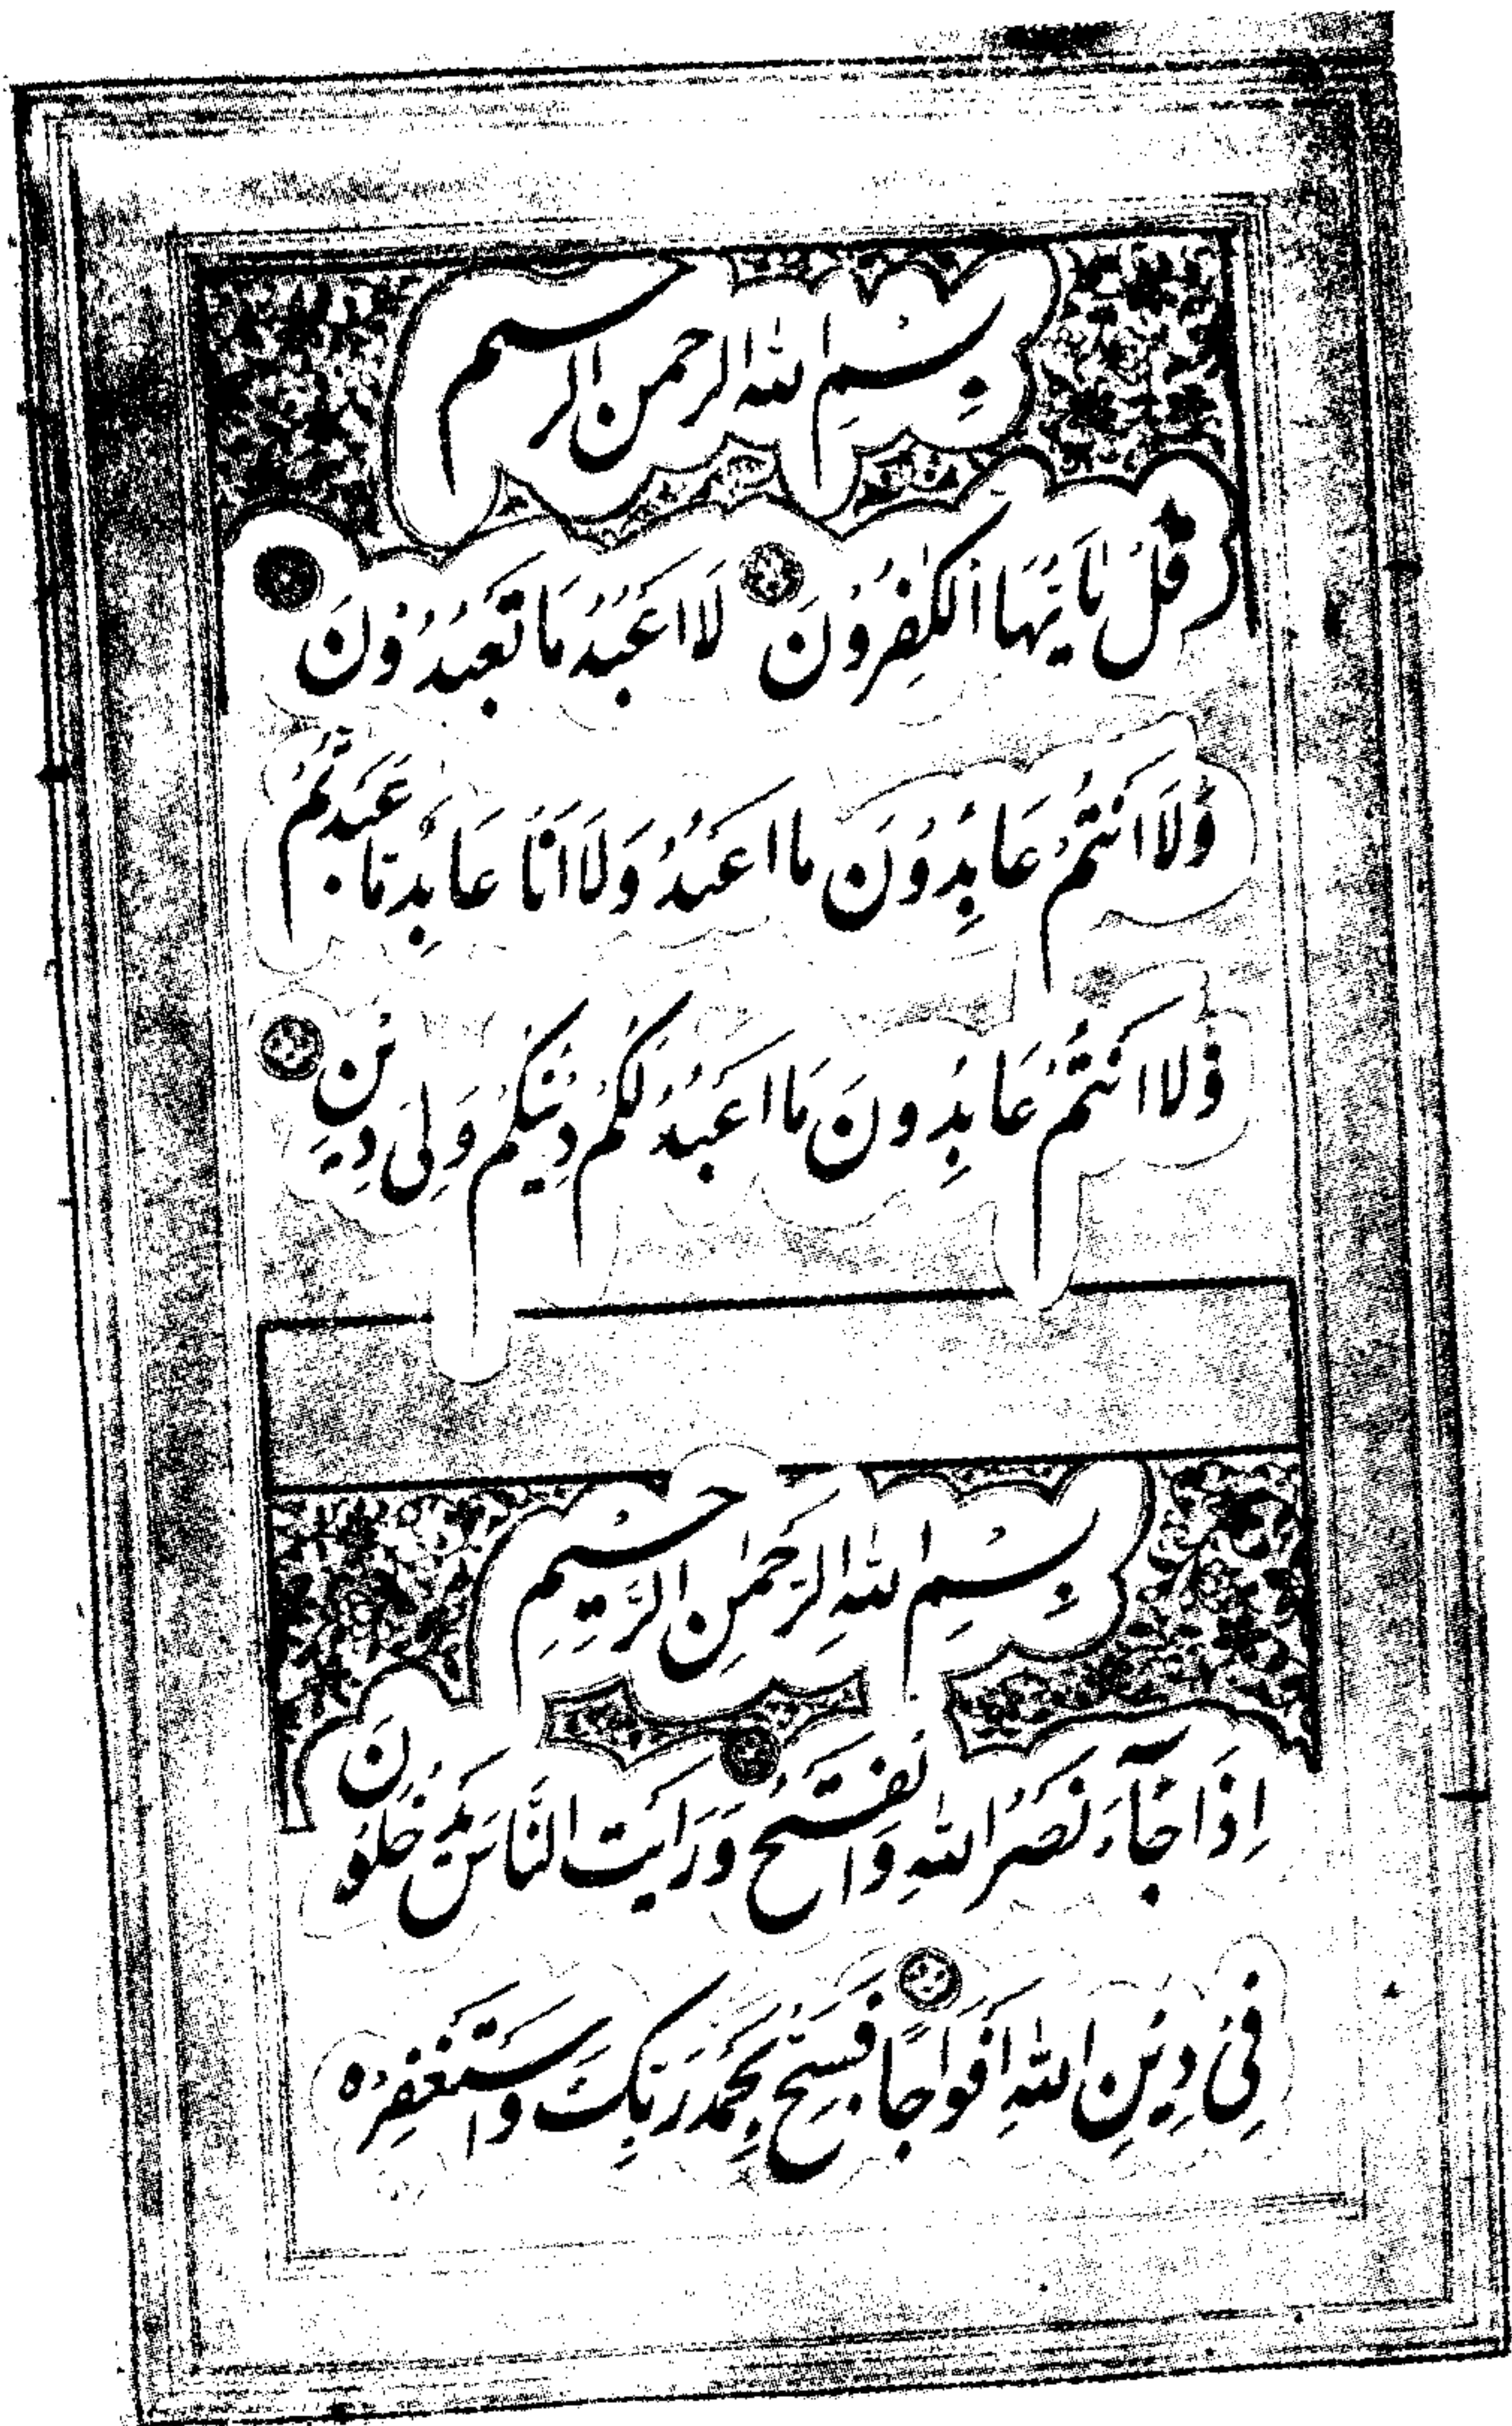 بِسْمِ اللّٰه الرحمن الرحیم
قُلْ یٰٓاَیُّهَا الْکٰفِرُوْنَ لَا اَعْبُدُ مَا تَعْبُدُوْنَ
وَلَا اَنْتُمْ عَابِدُوْنَ ما اَعْبُدُ وَلَا اَنَا عَابِدٌ مَا عَبَدْتُمْ
وَلا اَنْتُمْ عَابِدُونَ مَا اَعْبُدُ لَکُمْ دِیْنُکُمْ وَلِیَ دِیْنِ
بِسْمِ اللّٰهِ الرَّحْمٰنِ الرَّحِیْمِ
اِذَا جَآءَ نَصْرُ اللّٰهِ وَالْفَتْحُ وَرَاَیْتَ النَّاسَ یَدْخُلُوْنَ
فِیْ دِیْنِ اللّٰهِ اَفْوَاجًا فَسَبِّحْ بِحَمْدِ رَبِّکَ وَاسْتَغْفِرْهُ